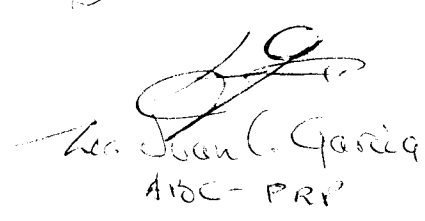 Lic. Juan C. Garcia
ABC - PRP